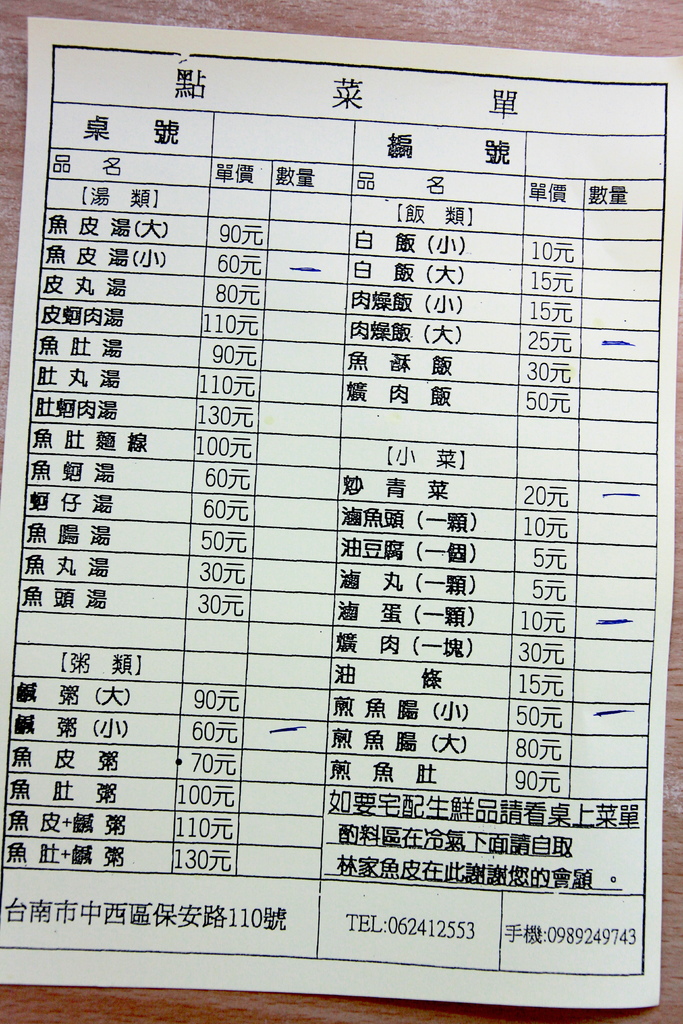 點 菜 單
桌 號 編 號
品 名 單價 數量 品 名 單價 數量
【湯 類】
魚 皮 湯(大) 90元
魚 皮 湯(小) 60元 一
皮 丸 湯 80元
皮蚵肉湯 110元
魚 肚 湯 90元
肚 丸 湯 110元
肚蚵肉湯 130元
魚 肚 麵 線 100元
魚 蚵 湯 60元
蚵 仔 湯 60元
魚 腸 湯 50元
魚 丸 湯 30元
魚 頭 湯 30元
【粥 類】
鹹 粥 (大) 90元
鹹 粥 (小) 60元 一
魚 皮 粥 70元
魚 肚 粥 100元
魚 皮+鹹 粥 110元
魚 肚+鹹 粥 130元
【飯 類】
白 飯 (小) 10元
白 飯 (大) 15元
肉燥飯 (小) 15元
肉燥飯 (大) 25元 一
魚 酥 飯 30元
爌 肉 飯 50元
【小 菜】
炒 青 菜 20元 一
滷魚頭 (一顆) 10元
油豆腐 (一個) 5元
滷 丸 (一顆) 5元
滷 蛋 (一顆) 10元 一
爌 肉 (一塊) 30元
油 條 15元
煎 魚 腸 (小) 50元 一
煎 魚 腸 (大) 80元
煎 魚 肚 90元
如要宅配生鮮品請看桌上菜單
酌料區在冷氣下面請自取
林家魚皮在此謝謝您的會顧 。
台南市中西區保安路110號 TEL:062412553 手機:0989249743